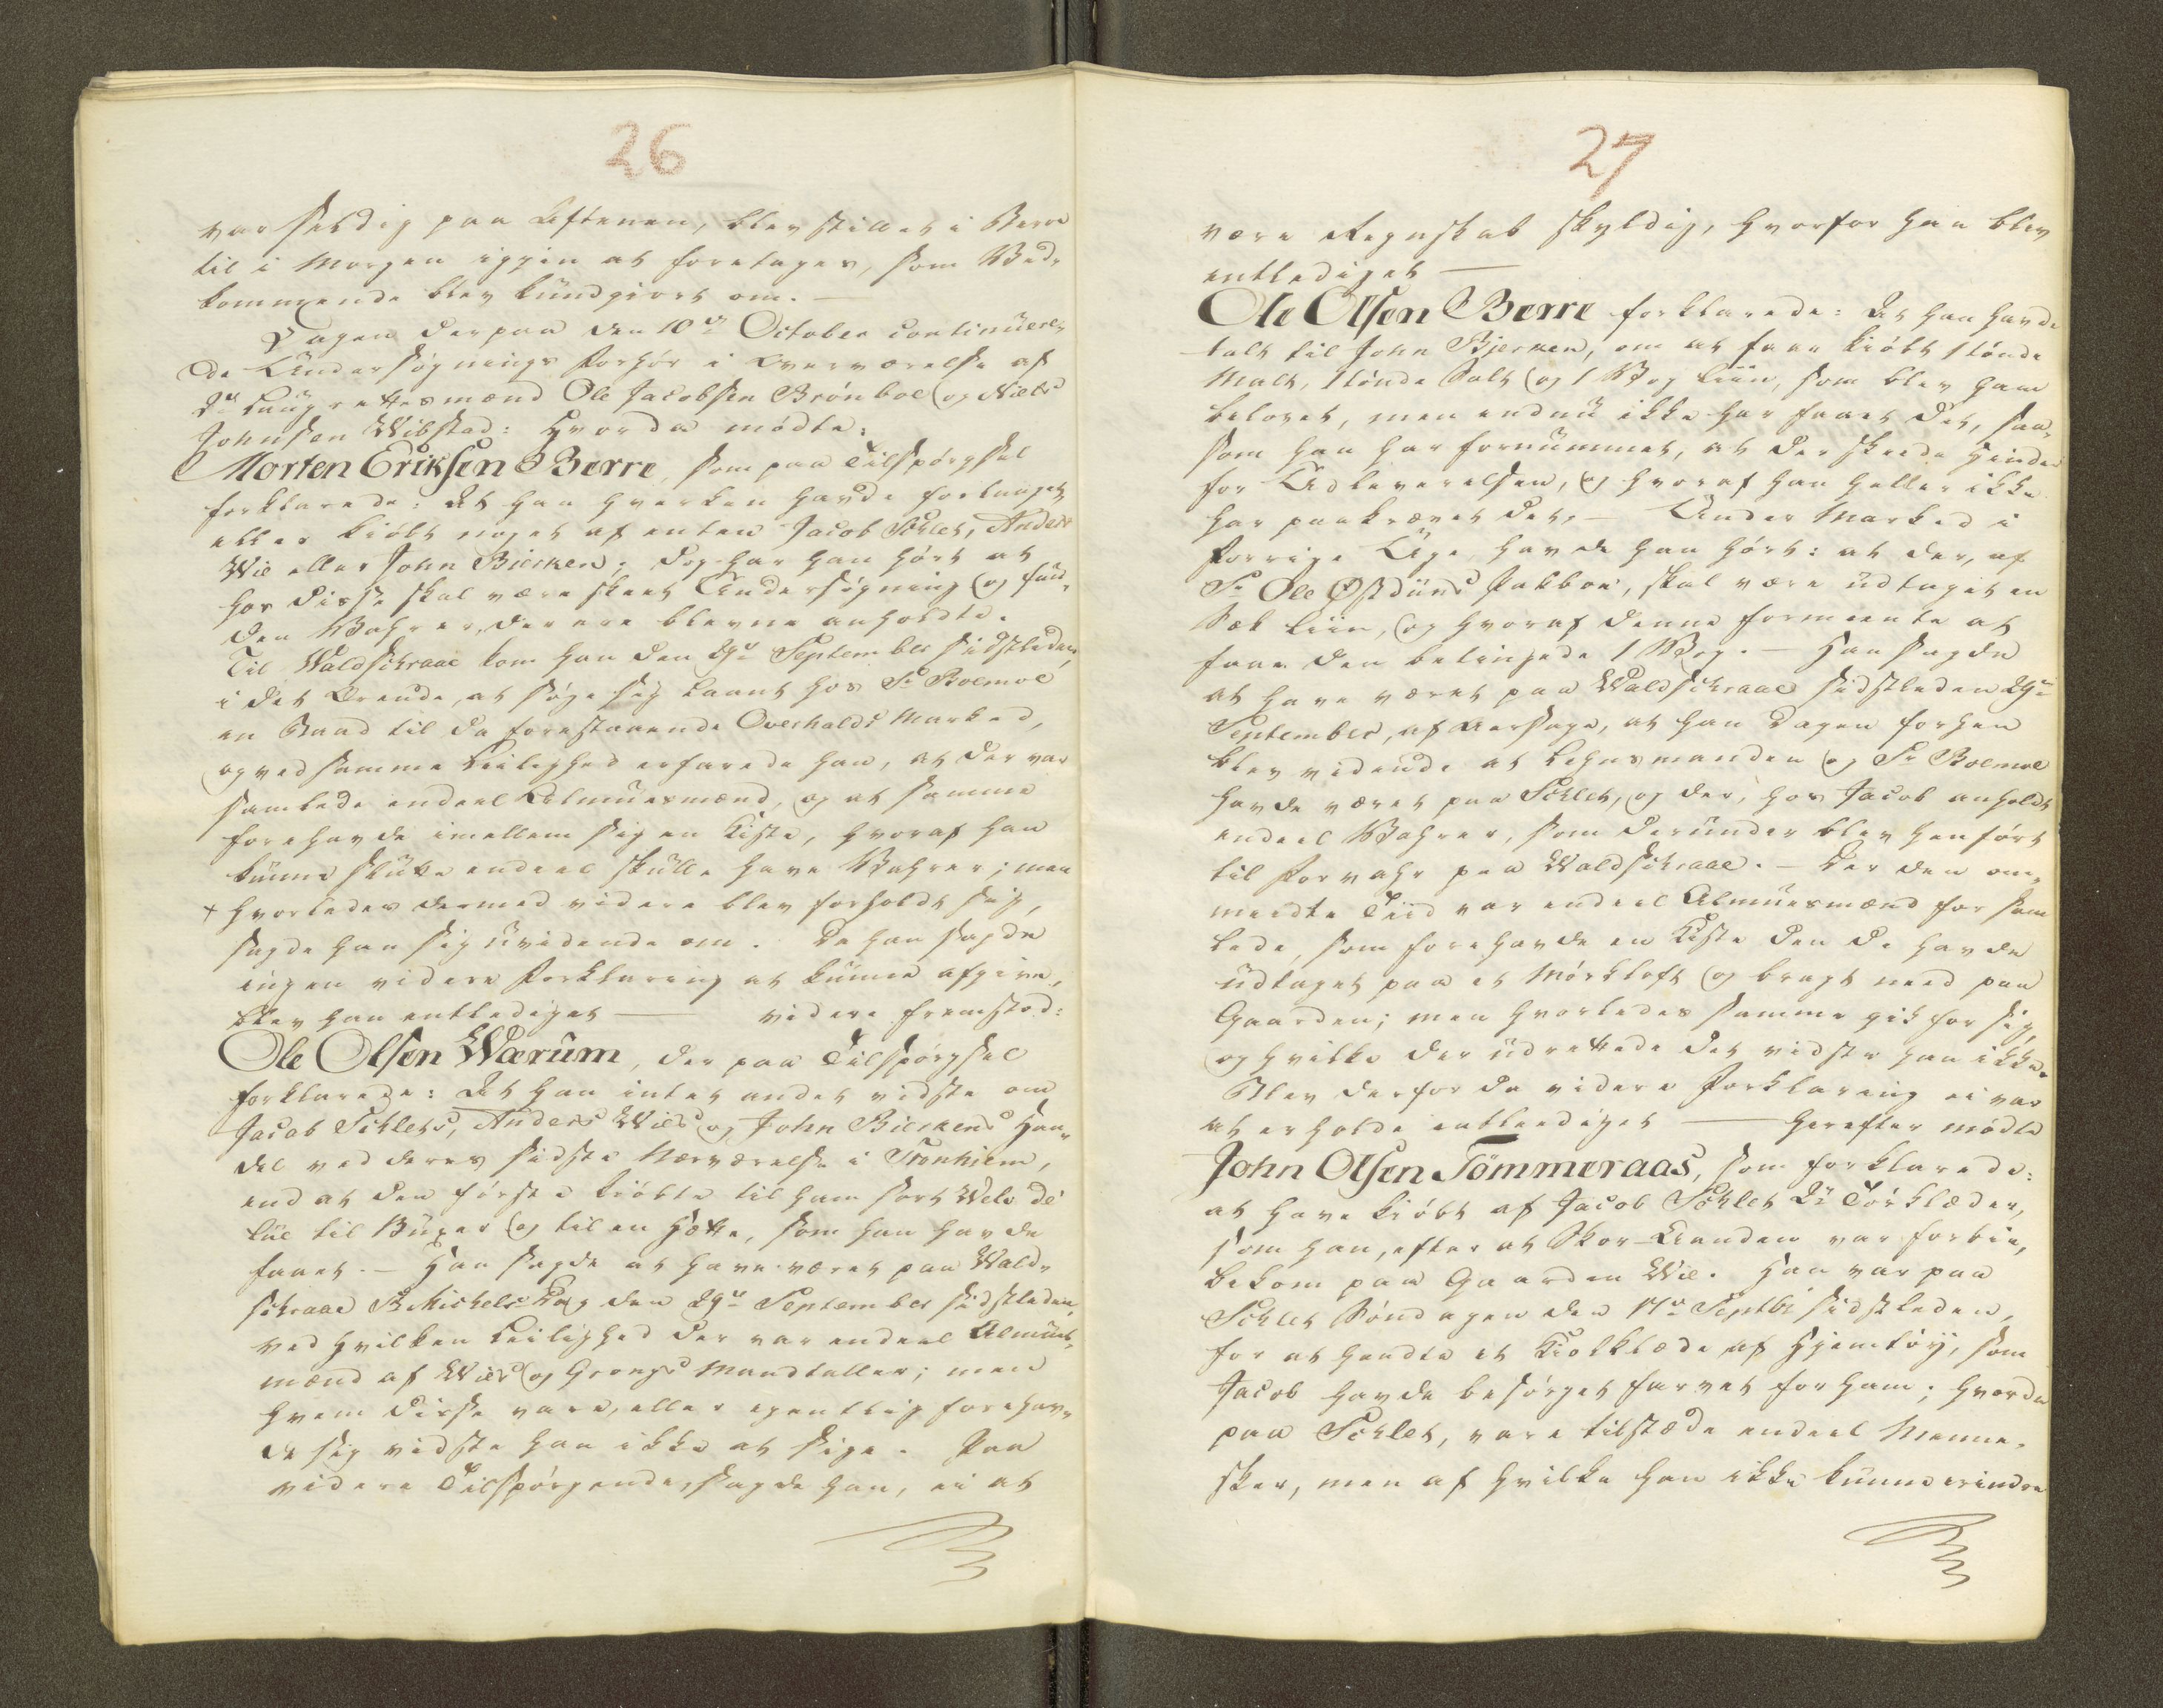 26
var sildig paa Aftenen, blev stillet i Bero
til i Morgen igien at foretages, som Ved-
kommende blev kundgiort om. —
Dagen derpaa den 10de October continuere-
de Undersøgnings Forhör i Overværelse af
2de Laugrettesmænd Ole Jacobsen Brönboe og Niels
Johnsen Wibstad: Hvorda mödte:
Morten Eriksen Berre, som paa Tilspörgsel
forklarede: At han hverken havde forlanget
eller kiöbt noget af enten Jacob Schlet, Anders
Wie eller John Biersken; dog har han hört at
hos disse skal være skeet Undersögning og fun-
den Vahrer, der ere blevne anholdte.
Til Waldschraae kom han den 29de September sidstleden,
i det Ærende, at söge sig laant hos Sr Roemoe
en Baad til da forestaaende Overhalds Marked,
og ved samme Leilighed erfarede han, at der var
samlede endeel Almuesmænd, og at samme
forehavde imellem sig en Kiste, hvoraf han
kunne slutte endeel skulle have Vahrer; men
+ hvorledes dermed videre blev forholdt sig,
sagde han sig uvidende om. Da han sagde
ingen videre Forklaring at kunne afgive,
blev han entlediget — videre fremstod:
Ole Olsen Wærum, der paa Tilspörgsel
forklarede: At han intet andet vidste om
Jacob Schlets, Anders Wies og John Bierkens Han-
del ved deres sidste Nærværelse i Tronhiem,
end at den förste kiöbte til ham sort Welv de
lüe til Buxer og til en Hætte, som han havde
faaet. — Han sagde at have været paa Wald-
schraae St Michels Dag den 29de September sidstleden,
ved hvilken Leilighed der var endeel Almues-
mænd af Wies og Grongs Mandtaller; men
hvem disse vare, eller egentlig forehav-
de sig vidste han ikke at sige. Paa
videre Tilspörgende, sagde han, ei at
27
være Regnskab skyldig, hvorfor han blev
entlediget —
Ole Olsen Berre forklarede: At han havde
talt til John Bjerken, om at faae kiöbt 1 tönde
Malt, 1 tönde Salt og 1 Vog Liin, som blev ham
belovet, men endnu ikke har faaet det, saa-
som han har fornummet, at der skeede Hinder
for Udleverelsen, og hvoraf han heller ikke
har paakrævet det. — Under Marked i
forrige Uge havde han hört: at der, af
Sr Ole Østduns Pakboe, skal være udtaget en
Sæk Liin, og hvoraf denne formeente at
faae den betingede 1 Vog. — Han sagde
at have været paa Waldschraae sidstleden 29de
September, af Aarsage, at han Dagen forhen
blev vidende at Lehnsmanden og Sr Roemoe
havde været paa Schlet, og der, hos Jacob anholdt
endeel Vahrer, som derunder blev henfört
til Forvahr paa Waldschraae. — Der den om-
meldte Tiid var endeel Almuesmænd for sam
lede, som forehavde en Kiste den de havde
udtaget paa et Mörkloft og bragt need paa
Gaarden; men hvorledes samme gik for sig,
og hvilke der udrettede det vidste han ikke.
Blev derfor da videre Forklaring ei var
at erholde entlediget — herefter mödte
John Olsen Tömmeraas, som forklarede:
at have kiöbt af Jacob Schlet 2de Törklæder,
som han, efter at Skor-Aanden var forbie,
bekom paa Gaarden Wie. Han var paa
Schlet Söndagen den 17de Septbr sidstleden,
for at hendte et Kiolklæde af Hjemtöy, som
Jacob havde besörget farvet for ham; hvorda
paa Schlet, vare tilstæde endeel Menne-
sker, men af hvilke han ikke kunne erindre